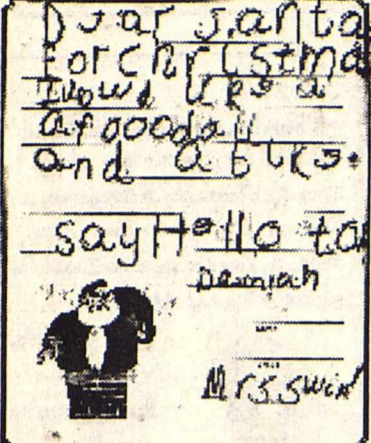 Dear Santa
For Christma
I wowd like a
a foooball
and a bike.
say Hello to
Mrs.swin